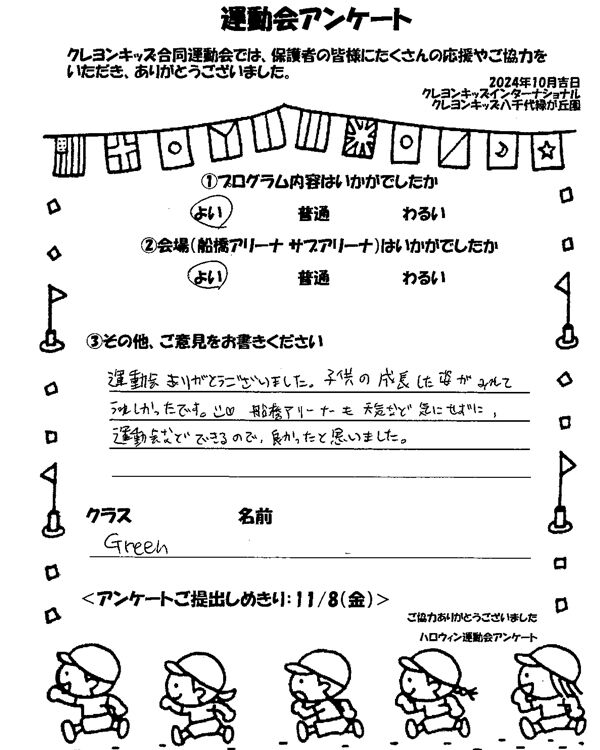 運動会アンケート
クレヨンキッズ合同運動会では、保護者の皆様にたくさんの応援やご協力を
いただき、ありがとうございました。
2024年10月吉日
クレヨンキッズインターナショナル
クレヨンキッズ八千代緑が丘園
①プログラム内容はいかがでしたか
よい 普通 わるい
②会場(船橋アリーナ サブアリーナ)はいかがでしたか
よい 普通 わるい
③その他、ご意見をお書きください
運動会ありがとうございました。子供の成長した姿がみれて
うれしかったです。船橋アリーナーも天気など気にせずに、
運動会などできるので、良かったと思いました。
クラス 名前
Green
<アンケートご提出しめきり:11/8(金)>
ご協力ありがとうございました
ハロウィン運動会アンケート